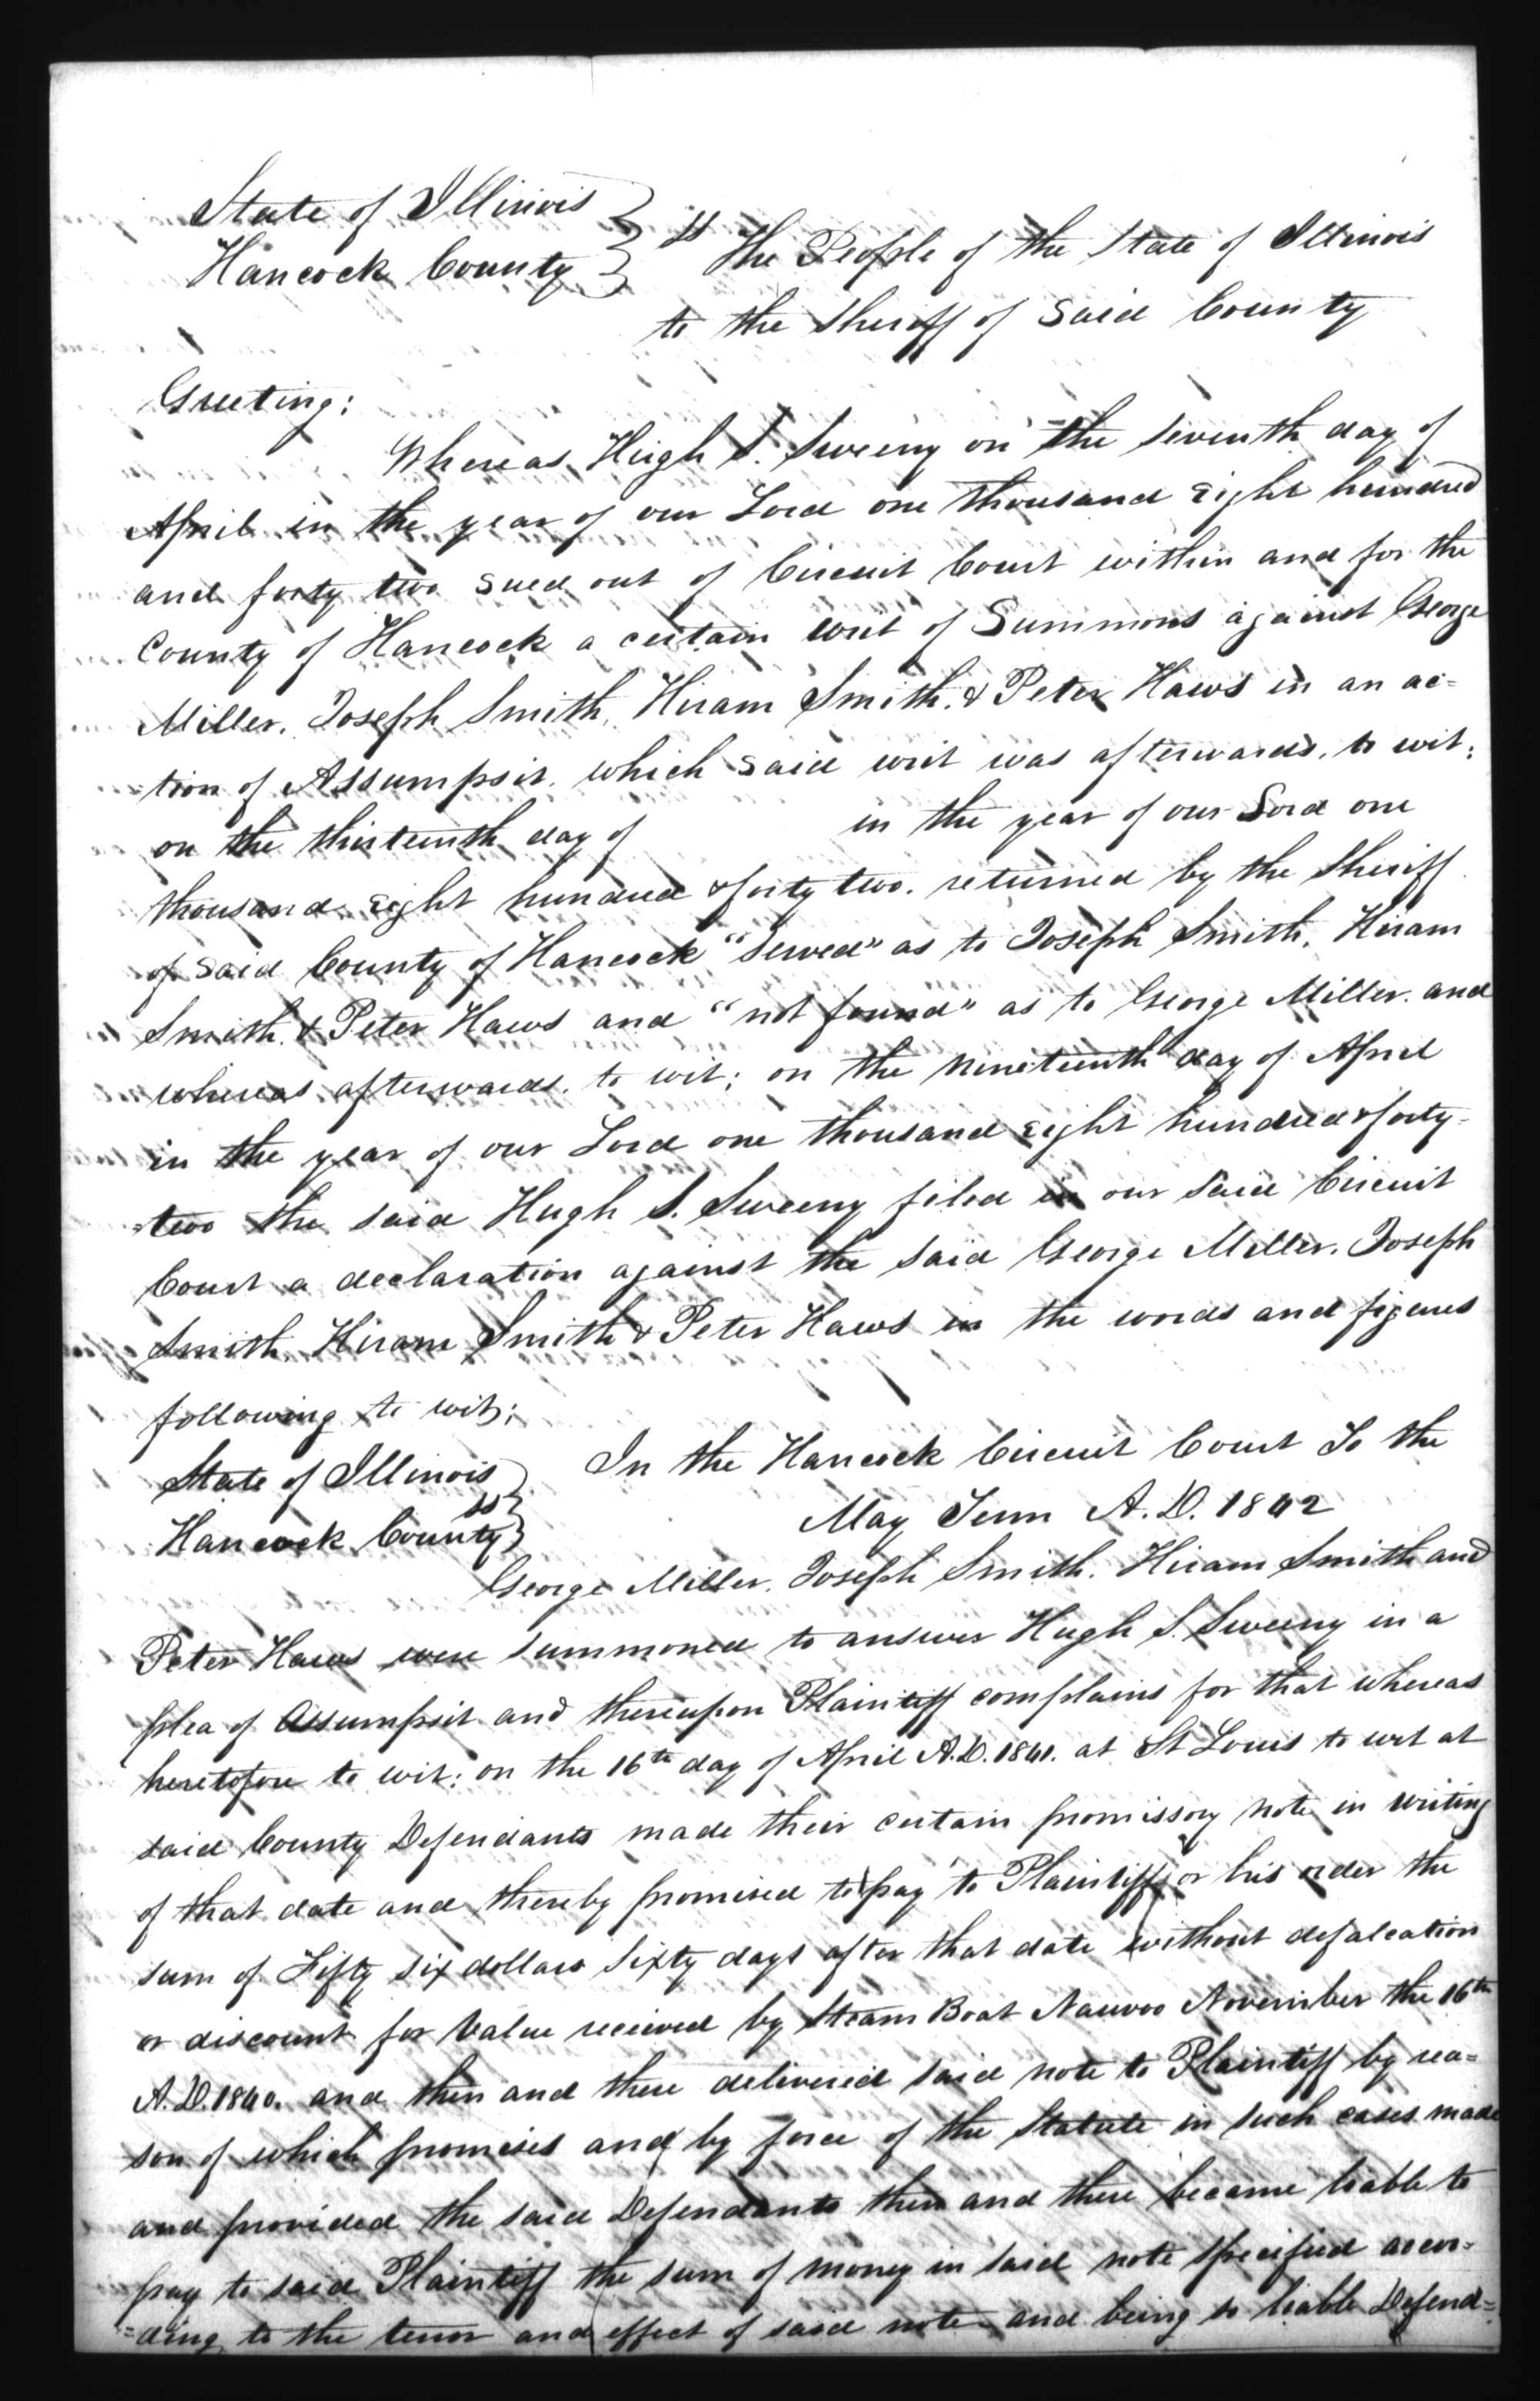 State of Illinois }
Hancock County } ss The People of the State of Illinois
to the Sheriff of said County
Greeting:
Whereas Hugh S. Sweeny on the seventh day of
April in the year of our Lord one thousand eight hundred
and forty two sued out of Circuit Court within and for the
County of Hancock a certain writ of Summons against George
Miller, Joseph Smith, Hiram Smith, & Peter Haws in an ac=
tion of Assumpsit, which said writ was afterwards, to wit:
on the thirteenth day of in the year of our Lord one
thousand eight hundred & forty two, returned by the Sheriff
of said County of Hancock "served" as to Joseph Smith, Hiram
Smith, & Peter Haws and "not found" as to George Miller, and
whereas afterwards, to wit; on the nineteenth day of April
in the year of our Lord one thousand eight hundred & forty=
=two the said Hugh S. Sweeny filed in our said Circuit
Court a declaration against the said George Miller, Joseph
Smith, Hiram Smith & Peter Haws in the words and figures
following to wit;
State of Illinois } In the Hancock Circuit Court To the
Hancock County ss } May Term A.D. 1842
George Miller, Joseph Smith, Hiram Smith and
Peter Haws were summoned to answer Hugh S. Sweeny in a
plea of Assumpsit and thereupon Plaintiff complains for that whereas
heretofore to wit: on the 16th day of April A.D. 1841. at St Louis to wit at
said County Defendants made their certain promissory note in writing
of that date and thereby promised to pay to Plaintiff or his order the
sum of Fifty six dollars sixty days after that date without defalcation
or discount for value received by Steam Boat Nauvoo November the 16th
A.D. 1840. and then and there delivered said note to Plaintiff by rea=
son of which promises and by force of the Statute in such cases made
and provided the said Defendants then and there became liable to
pay to said Plaintiff the sum of money in said note specified accor=
=ding to the tenor and effect of said note and being so liable Defend=